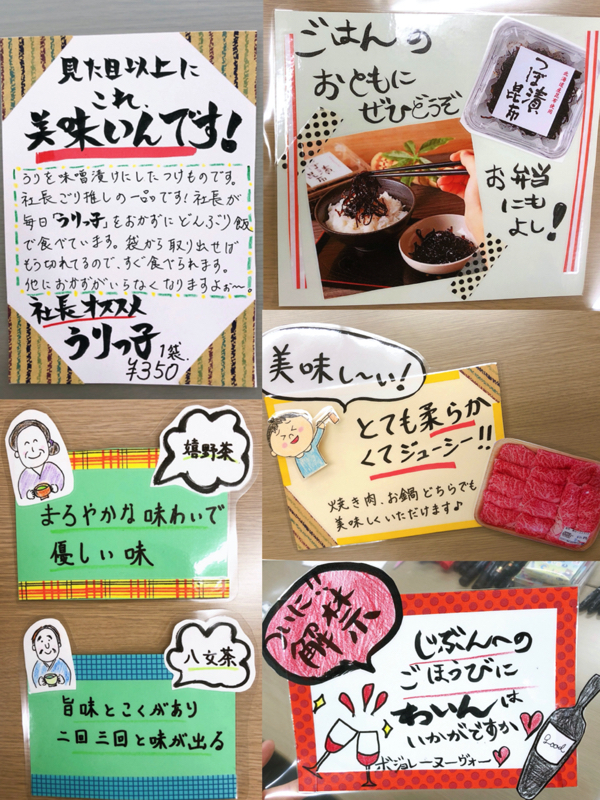 見た目以上に
これ、
美味いんです!
うりを味噌漬けにしたつけものです。
社長ごり推しの一品です!社長が
毎日「うりっ子」をおかずにどんぶり飯
で食べています。袋から取り出せば
もう切れてるので、すぐ食べられます。
他におかずがいらなくなりますよぉ〜。
社長オススメ
うりっ子
1袋.
¥350
ごはんの
おともに
ぜひどうぞ
つぼ漬
昆布
お弁当
にも
よし!
美味し〜い!
とても柔らか
くてジューシー!!
焼き肉、お鍋どちらでも
美味しくいただけます♪
嬉野茶
まろやかな味わいで
優しい味
八女茶
旨味とこくがあり
二回三回と味が出る
ついに!!
解禁
じぶんへの
ごほうびに
わいんは
いかがですか
ボジョレーヌーヴォー